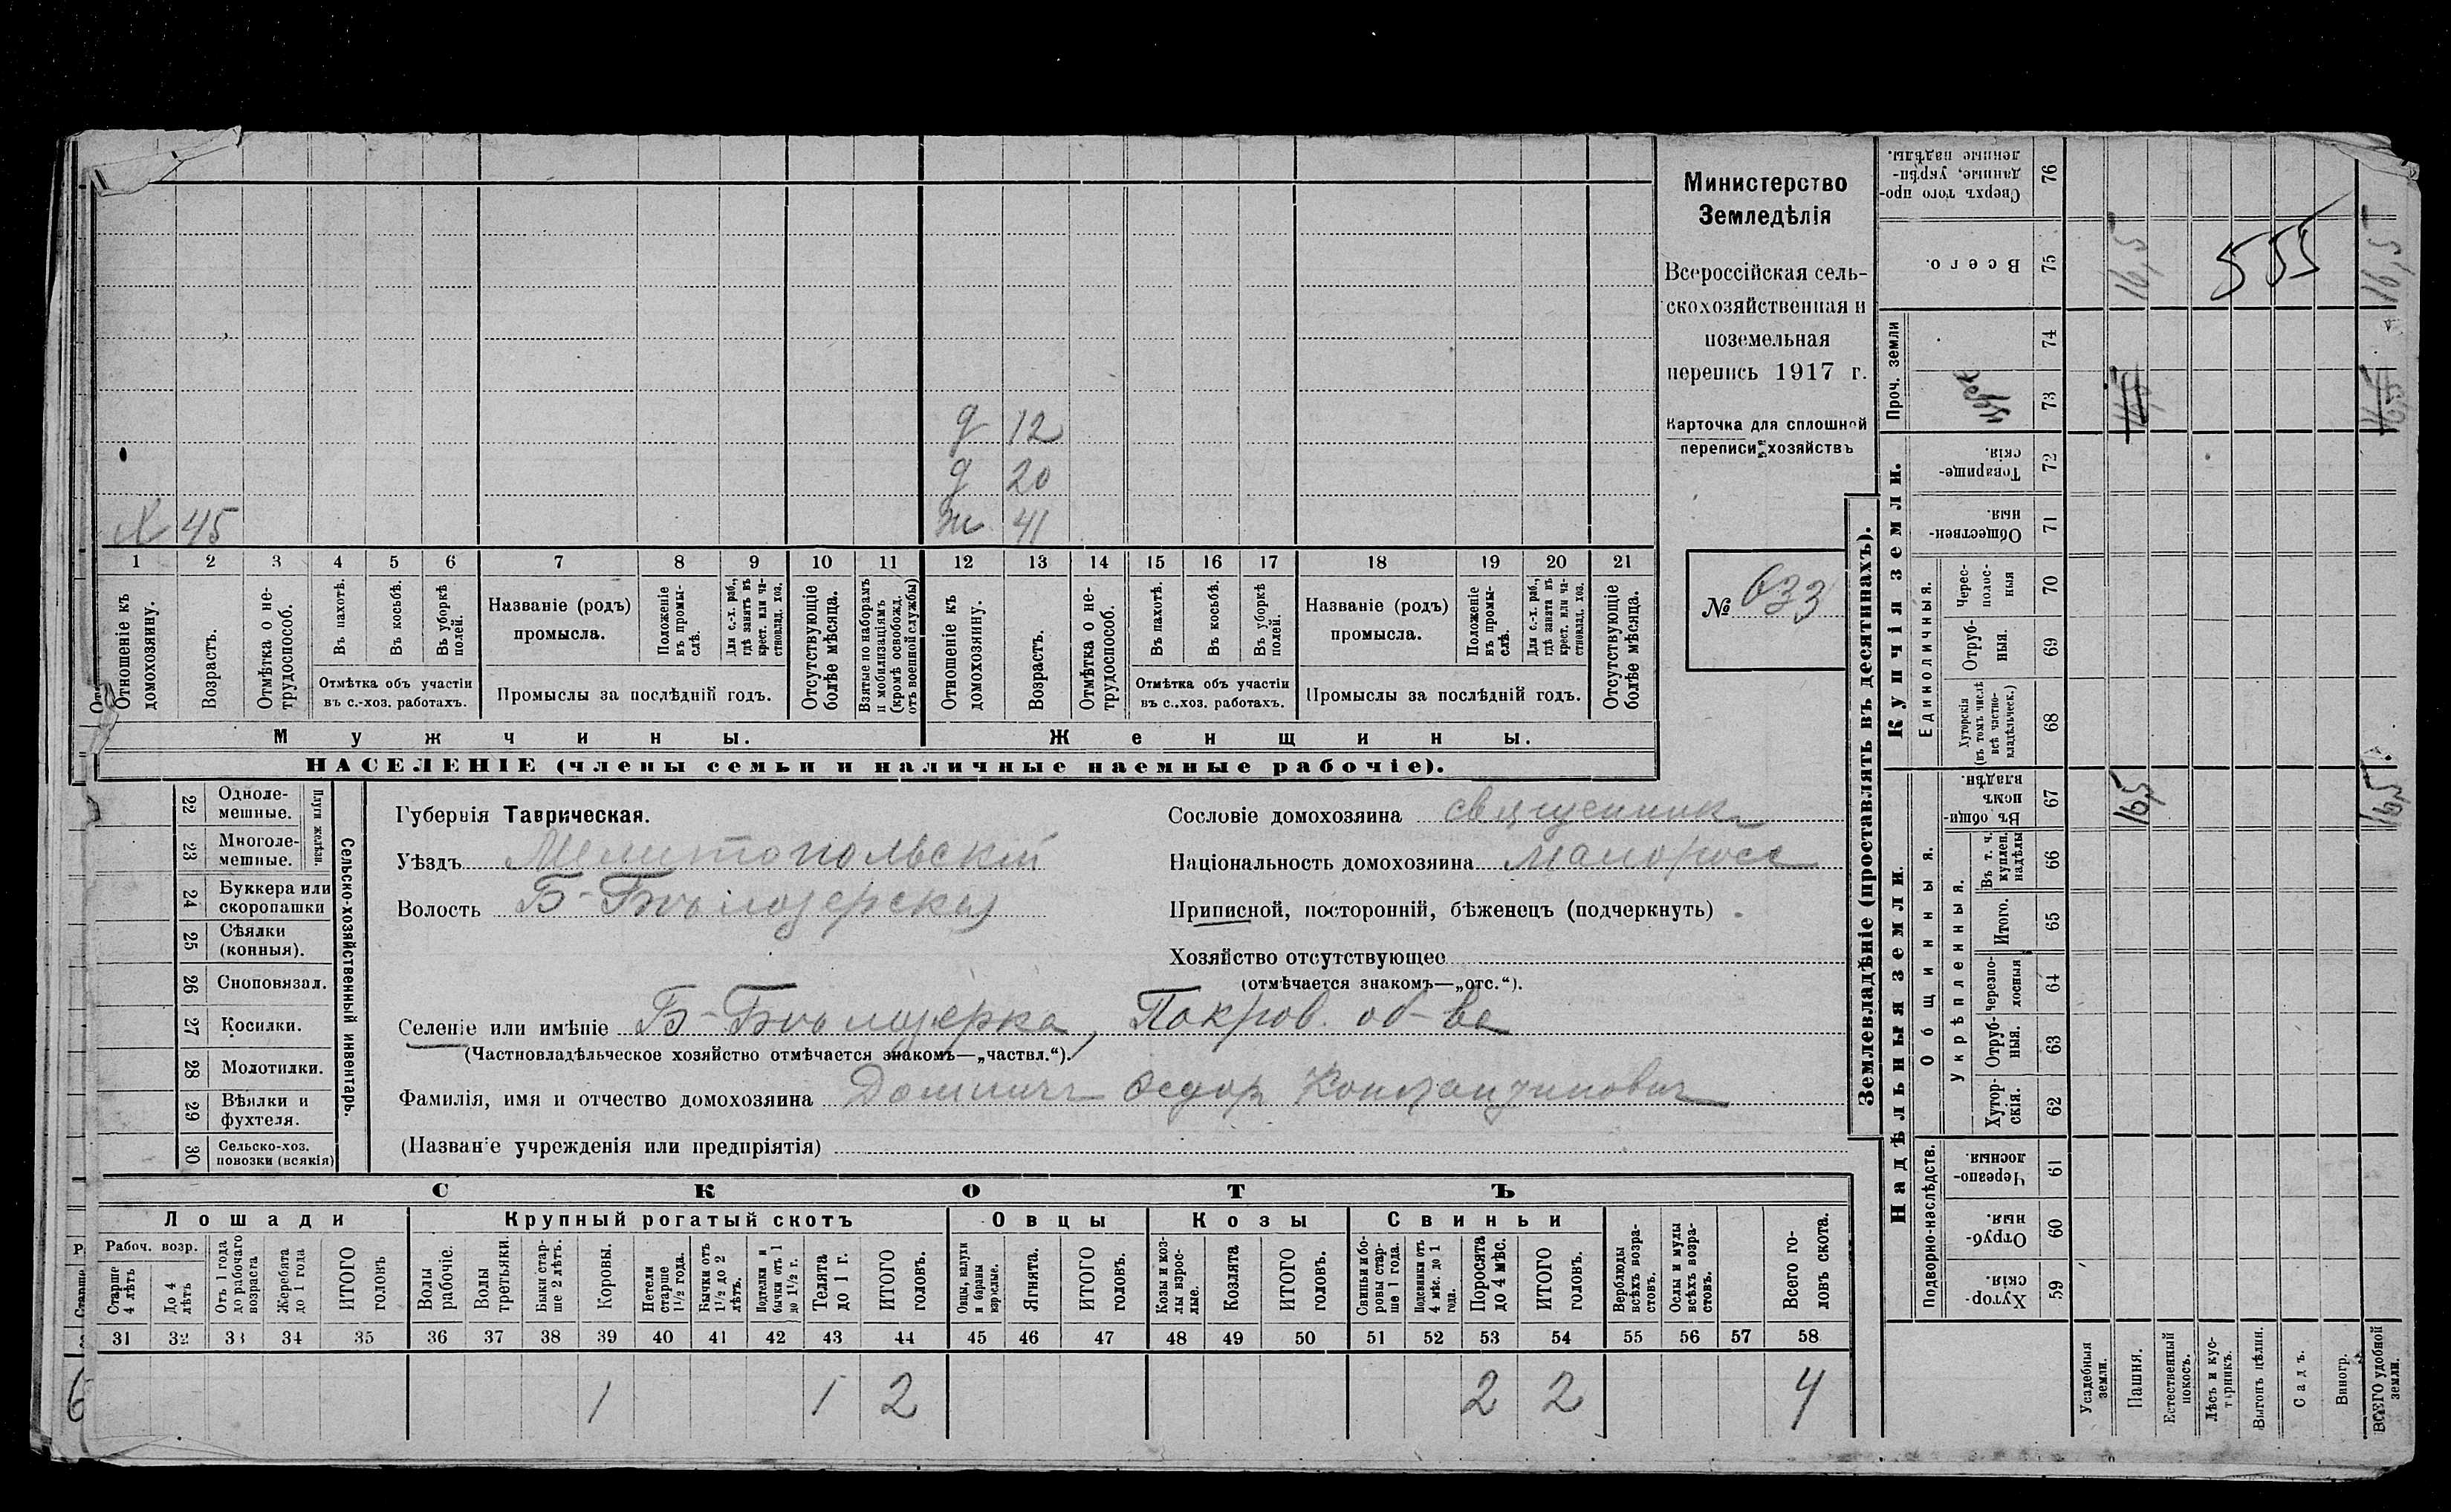 Министерство
Земледѣлія
Всероссійская сель-
скохозяйственная и
поземельная
перепись 1917 г.
Карточка для сплошной
переписи хозяйствъ
№ 633
д 12
д 20
Х 45
ж 41
1 2 3 4 5 6 7 8 9 10 11 12 13 14 15 16 17 18 19 20 21
Отношеніе къ домохозяину.
Возрастъ.
Отмѣтка о не-трудоспособ.
Въ пахотѣ.
Въ косьбѣ.
Въ уборкѣ полей.
Отмѣтка объ участіи
въ с.-хоз. работахъ.
Названіе (родъ)
промысла.
Положеніе въ промы-слѣ.
Для с.-х. раб., гдѣ занятъ въ крест. или ча-стновлад. хоз.
Промыслы за послѣдній годъ.
Отсутствующіе болѣе мѣсяца.
Взятые по наборамъ и мобилизаціямъ (кромѣ освобожд. отъ военной службы)
Отношеніе къ домохозяину.
Возрастъ.
Отмѣтка о не-трудоспособ.
Въ пахотѣ.
Въ косьбѣ.
Въ уборкѣ полей.
Отмѣтка объ участіи
въ с..хоз. работахъ.
Названіе (родъ)
промысла.
Положеніе въ промы-слѣ.
Для с.-х. раб., гдѣ занята въ крест. или ча-стновлад. хоз.
Промыслы за послѣдній годъ.
Отсутствующіе болѣе мѣсяца.
Мужчины.
Женщины.
НАСЕЛЕНІЕ (члены семьи и наличные наемные рабочіе).
Сельско-хозяйственный инвентарь.
Плуги желѣзн.
22 Одноле-мешные.
23 Многоле-мешные.
24 Буккера или скоропашки
25 Сѣялки (конныя).
26 Сноповязал.
27 Косилки.
28 Молотилки.
29 Вѣялки и фухтеля.
30 Сельско-хоз. повозки (всякія)
Губернія Таврическая.
Уѣздъ Мелитопольскій
Волость Б-Бѣлозерская
Сословіе домохозяина священник
Національность домохозяина малоросс
Приписной, посторонній, бѣженецъ (подчеркнуть)
Хозяйство отсутствующее
(отмѣчается знакомъ—„отс.“).
Селеніе или имѣніе Б-Бѣлозерка, Покров. об-ва
(Частновладѣльческое хозяйство отмѣчается знакомъ—„частвл.“).
Фамилія, имя и отчество домохозяина Федор Константинович
(Названіе учрежденія или предпріятія)
СКОТЪ
Лошади
Крупный рогатый скотъ
Овцы
Козы
Свиньи
Рабоч. возр.
Старше 4 лѣтъ
До 4 лѣтъ
Отъ 1 года до рабочаго возраста
Жеребята до 1 года
ИТОГО головъ
Волы рабочіе.
Волы третьяки.
Быки стар-ше 2 лѣтъ.
Коровы.
Нетели старше 1½ года.
Бычки отъ 1½ до 2 лѣтъ.
Подтелки и бычки отъ 1 до 1½ г.
Телята до 1 г.
ИТОГО головъ.
Овцы, валухи и бараны взрослые.
Ягнята.
ИТОГО головъ.
Козы и коз-лы взрос-лые.
Козлята
ИТОГО головъ.
Свиньи бо-ровы стар-ше 1 года.
Подсвинки отъ 4 мѣс. до 1 года.
Поросята до 4 мѣс.
ИТОГО головъ.
Верблюды всѣхъ возра-стовъ.
Ослы и мулы всѣхъ возра-стовъ.
Всего го-ловъ скота.
31 32 33 34 35 36 37 38 39 40 41 42 43 44 45 46 47 48 49 50 51 52 53 54 55 56 57 58
1 1 2 2 2 4
Землевладѣніе (проставлять въ десятинахъ).
Надѣльныя земли.
Купчія земли.
Проч. земли
Подворно-наслѣдств.
Общинныя.
Укрѣпленныя.
Единоличныя.
59 Хутор-скія.
60 Отруб-ныя.
61 Черезпо-лосныя.
62 Хутор-скія.
63 Отруб-ныя.
64 Черезпо-лосныя
65 Итого.
66 Въ т. ч. куплен. надѣлы
67 Въ общи-номъ владѣн.
68 Хуторскія (въ томъ числѣ всѣ частно-владѣльческ.)
69 Отруб-ныя.
70 Черес-полос-ныя
71 Обществен-ныя.
72 Товарище-скія.
73
74
75 Всего.
76 Сверхъ того про-данные, укрѣп-ленные надѣлы.
Усадебныя земли.
Пашня.
Естественный покосъ.
Лѣсъ и кус-тарникъ.
Выгонъ цѣлин.
Садъ.
Виногр.
ВСЕГО удобной земли.
16,5
16,5
16,5
16,5
555